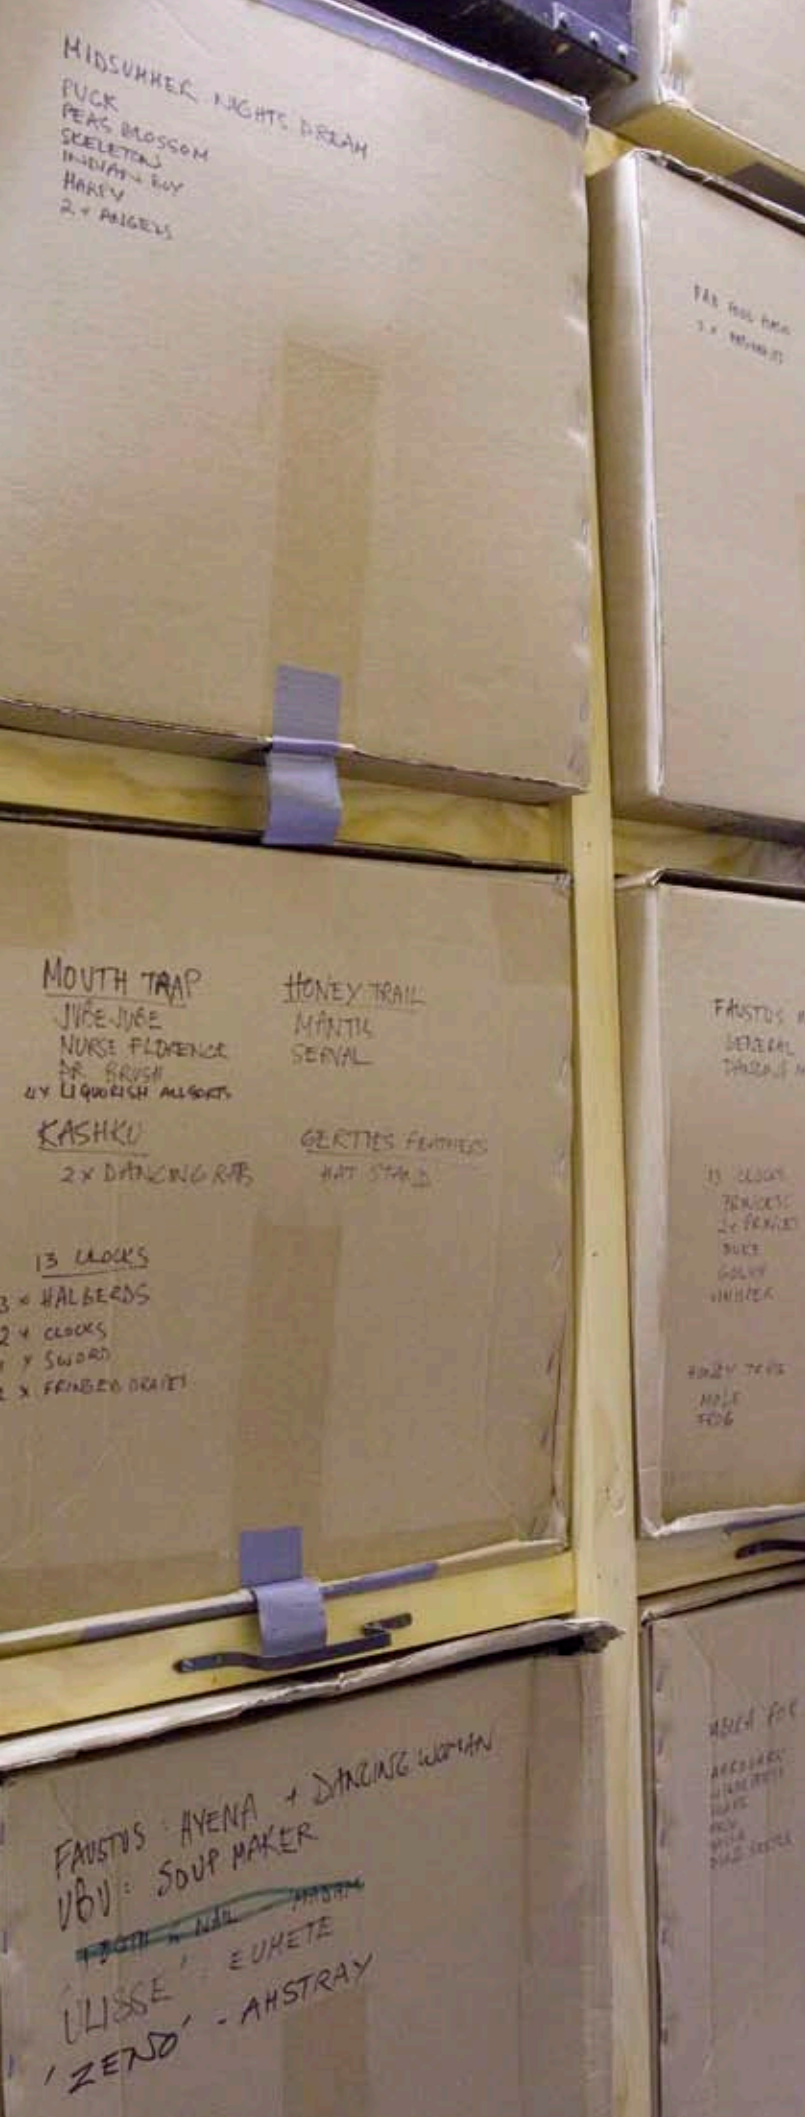 MIDSUMMER NIGHTS DREAM
PUCK
PEAS BLOSSOM
SKELETON
INDIAN BOY
HARPY
2 x ANGELS
MOUTH TRAP
JUBE JUBE
NURSE FLORENCE
DR BRUSH
4x LIQUORISH ALLSORTS
HONEY TRAIL
MANTIS
SERVAL
KASHKU
2 x DANCING
GERTIES FEATHERS
HAT STAND
13 CLOCKS
3 x HALBERDS
2 x CLOCKS
x SWORD
x FRINGED DRAPES
FAUSTUS
GENERAL
DANCING
13 CLOCKS
PRINCESS
2x PRINCES
DUKE
GOLUX
WHISPER
HONEY
MOLE
FROG
FAUSTUS : HYENA + DANCING WOMAN
UBU : SOUP MAKER
ULISSE' : EUMETE
'ZENO' - AHSTRAY
AARDVARK